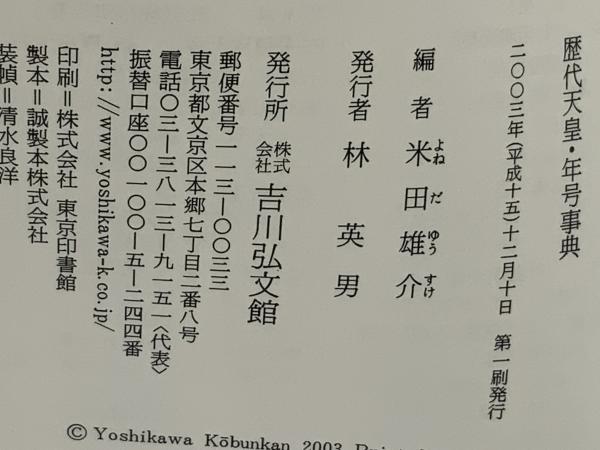 歴代天皇・年号事典
二〇〇三年(平成十五)十二月十日 第一刷発行
編者 米田雄介
よねだゆうすけ
発行者 林英男
発行所 株式会社 吉川弘文館
郵便番号一一三―〇〇三三
東京都文京区本郷七丁目二番八号
電話〇三―三八一三―九一五一〈代表〉
振替口座〇〇一〇〇―五―二四四番
http://www.yoshikawa-k.co.jp/
印刷＝株式会社 東京印書館
製本＝誠製本株式会社
装幀＝清水良洋
© Yoshikawa Kōbunkan 2003